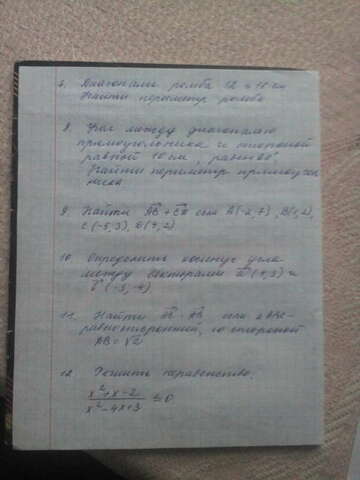 7. Диагонали ромба 12 и 16 см
Найти периметр ромба
8. Угол между диагональю
прямоугольника и стороной
равной 10 см, равен 60°
Найти периметр прямоуголь
ника
9. Найти AB + CD если A(-2,7), B(1,2),
C(-5,3), D(4,2)
10. Определить косинус угла
между векторами a(4,3) и
b(-3,-4)
11. Найти AC · AB если △ABC-
равносторонний, со стороной
AB = √2
12. Решить неравенство.
x²+x-2
x²-4x+3 ≤ 0